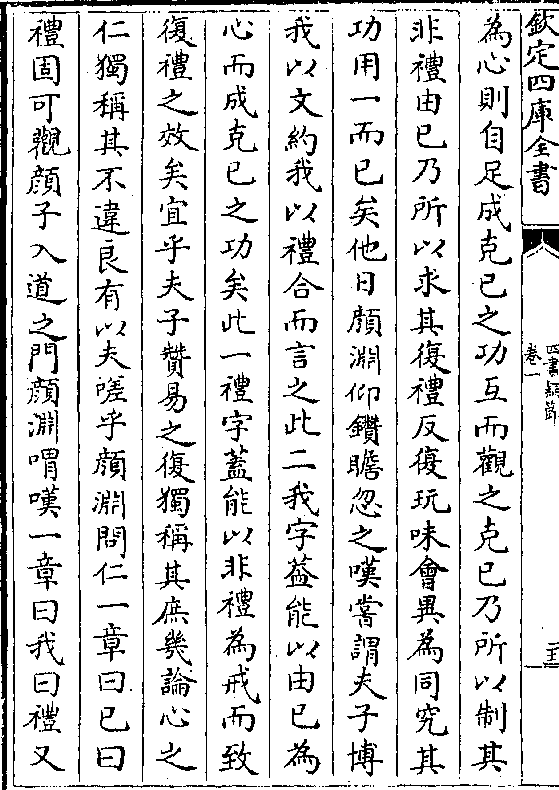 欽定四庫全書
卷一
為心則自足成克已之功互而觀之克已乃所以制其
非禮由已乃所以求其復禮反復玩味會異為同究其
功用一而已矣他日顔淵仰鑽瞻忽之嘆嘗謂夫子博
我以文約我以禮合而言之此二我字葢能以由已為
心而成克已之功矣此一禮字葢能以非禮為戒而致
復禮之效矣宜乎夫子贊易之復獨稱其庶幾論心之
仁獨稱其不違良有以夫嗟乎顔淵問仁一章曰已曰
禮固可觀顔子入道之門顔淵喟嘆一章曰我曰禮又